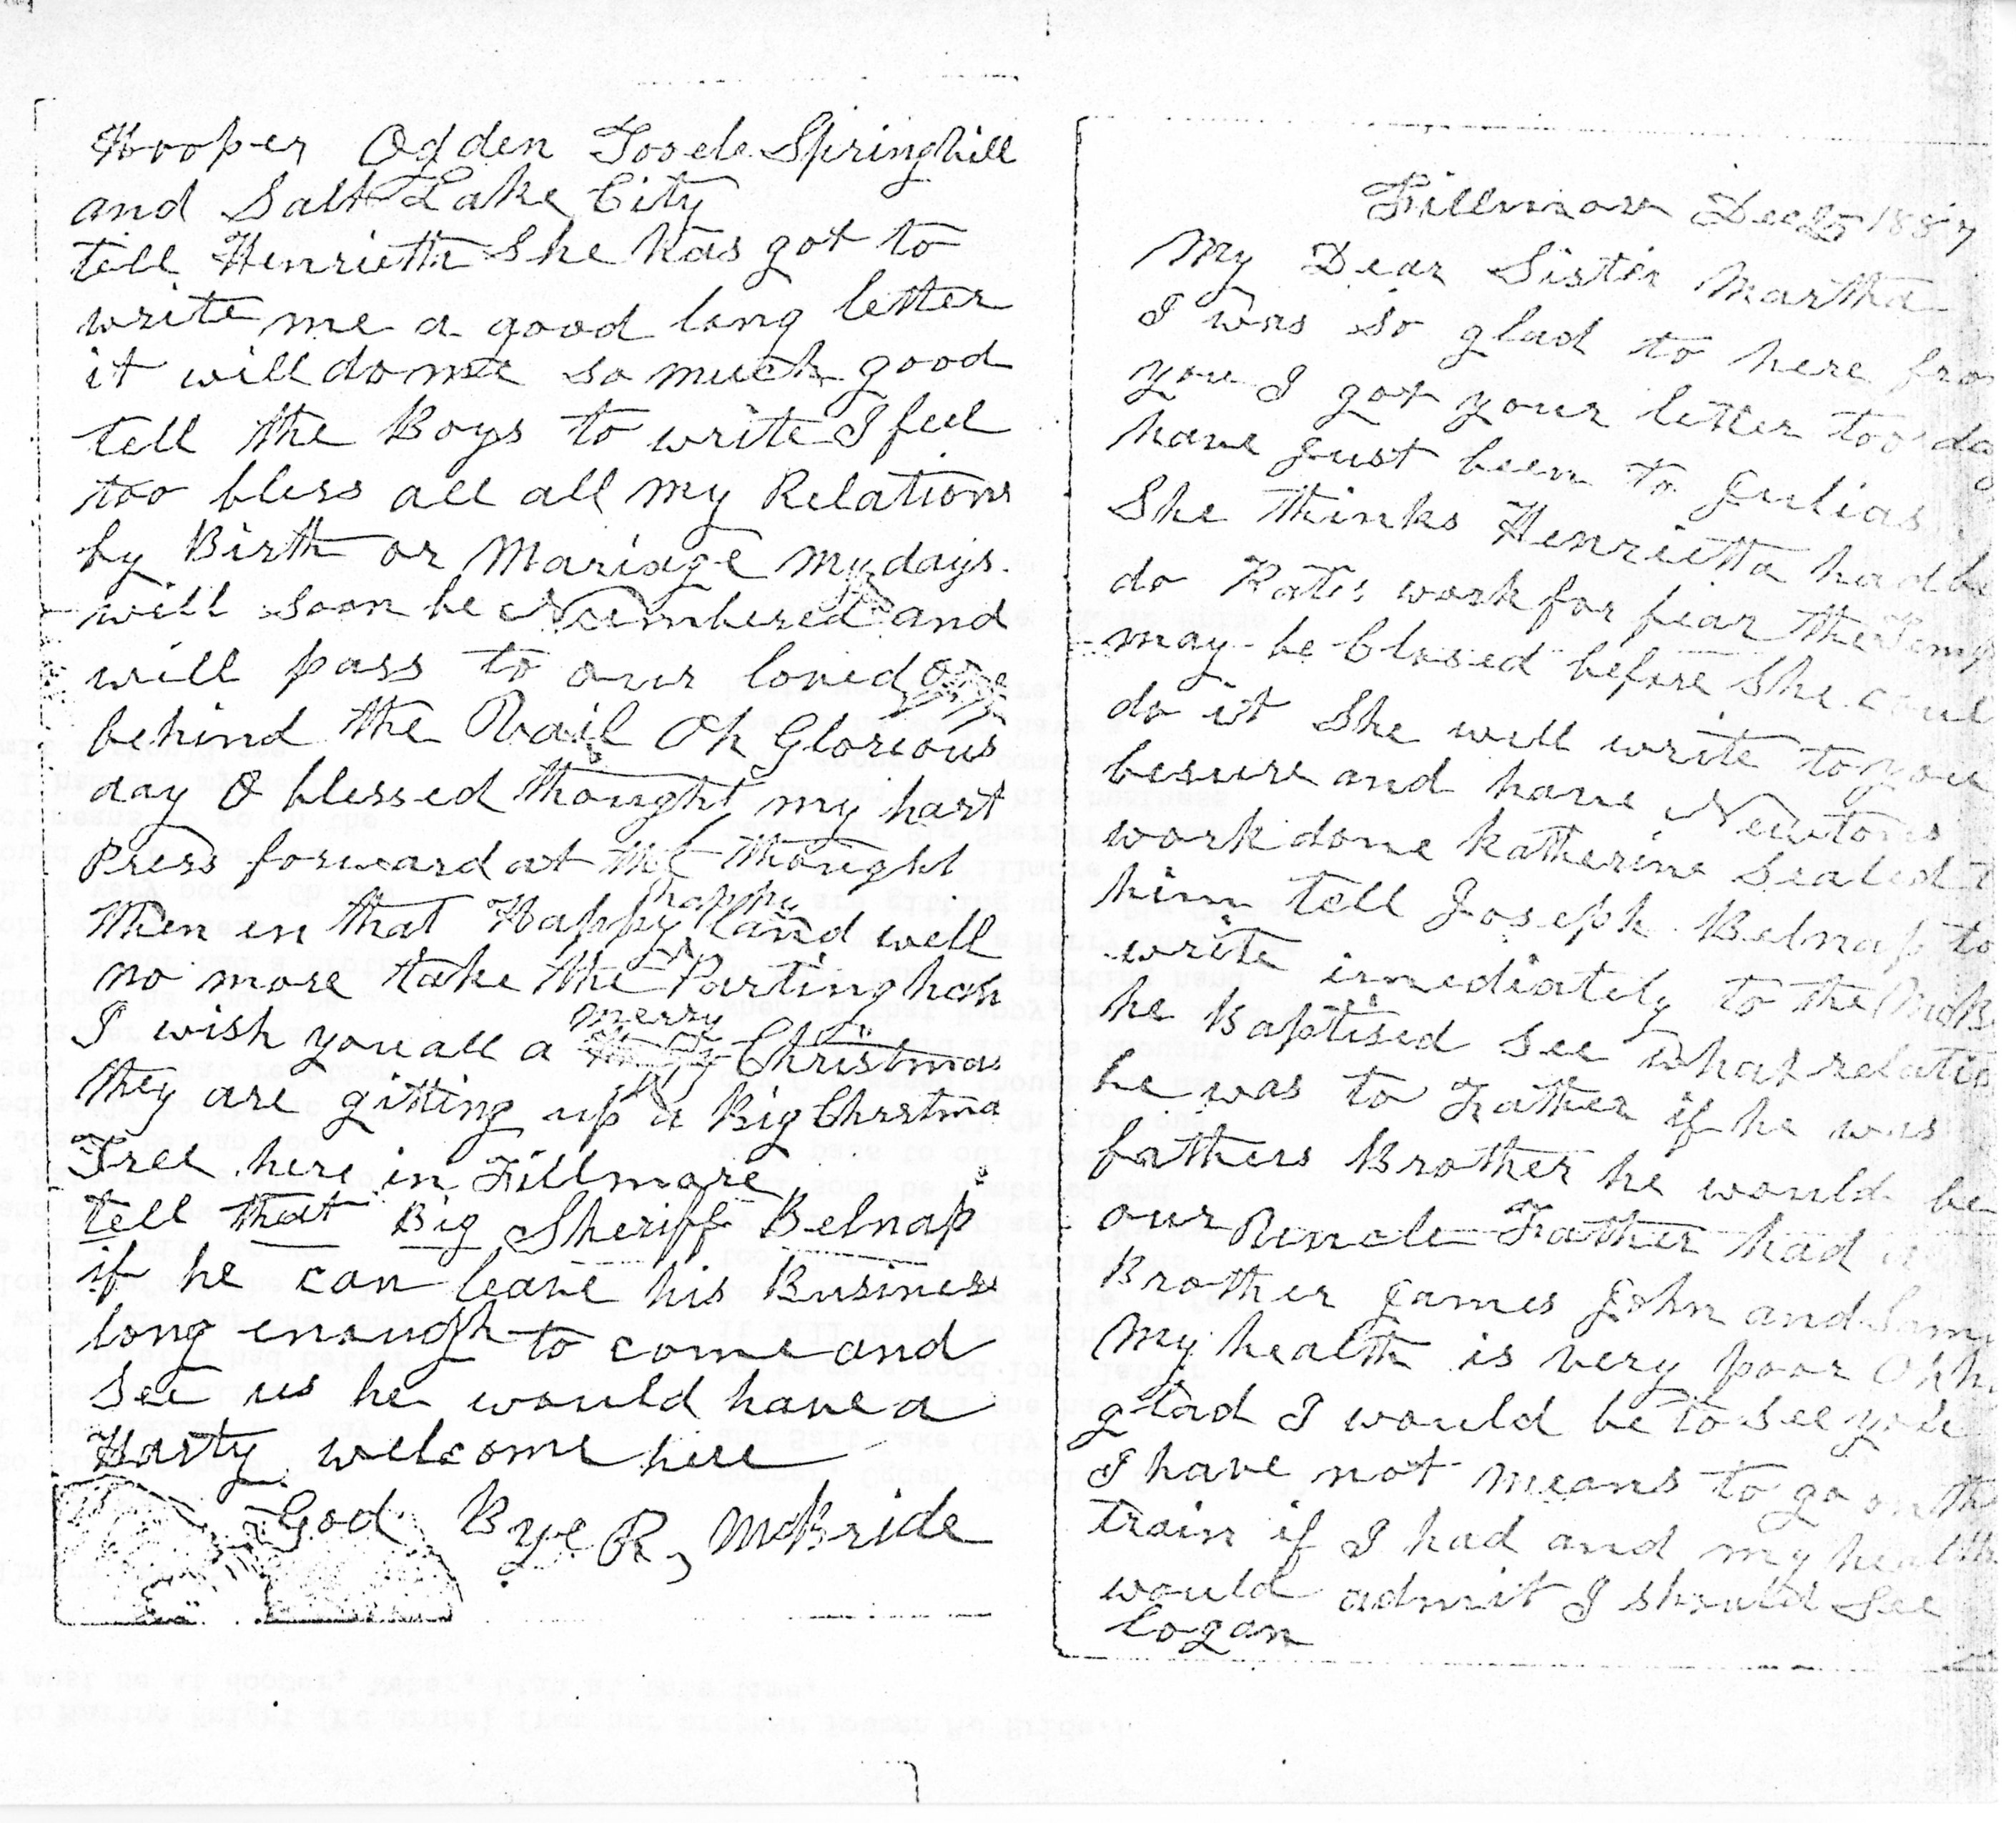 Fillmore Dec 25 1887
My Dear Sister Martha
I was so glad to here from
you I got your letter too day
have just been to Julias
She thinks Henrietta had be
do Kates work for fear the Temp
may be Closed before She coul
do it She will write to you
besure and have Newtons
work done Katherine Sealed t
him tell Joseph Belnap to
write imediately to the McB
he Baptised see what relatio
he was to Father if he was
fathers Brother he would be
our Uncle Father had
Brother James John and Sam
My health is very poor Oh h
glad I would be to see you
I have not means to go on th
train if I had and my health
would admit I should See
Logan
Hooper Ogden Tooele Springhill
and Salt Lake City
tell Henrietta She has got to
write me a good long letter
it will do me so much good
tell the Boys to write I feel
too bless all all my Relations
by Birth or Mariage my days
will soon be Numbered and
will pass to our loved one
behind the Vail Oh Glorious
day O blessed thought my hart
Press forward at the thought
then in that Happy happy land well
no more take the Parting han
I wish you all a merry Christmas
they are gitting up a Big Chrstma
Tree here in Fillmore
tell that Big Sheriff Belnap
if he can leave his Business
long enough to come and
see us he would have a
Harty welcome here
God Bye R, McBride